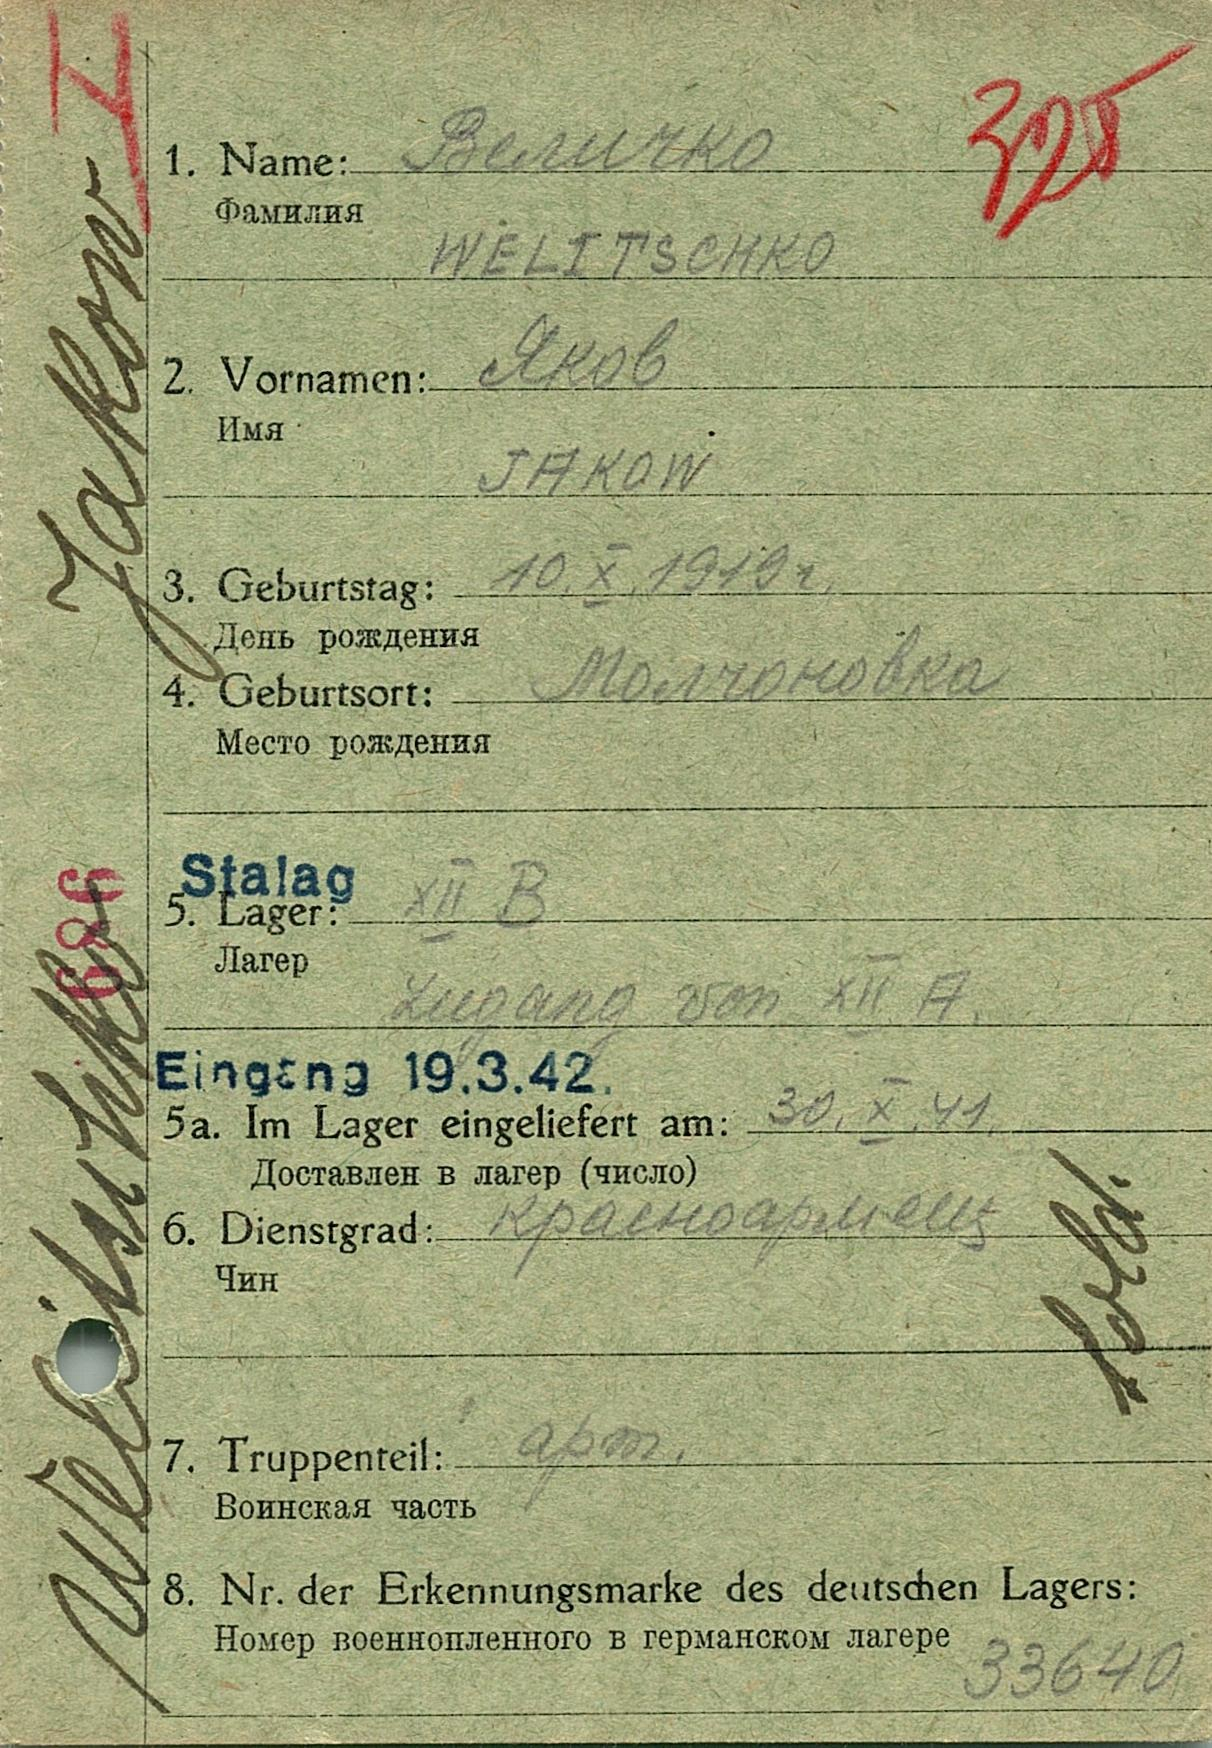 I
325
1. Name: Величко
Фамилия
WELITSCHKO
2. Vornamen: Яков
Имя
JAKOW
3. Geburtstag: 10.X.1919г.
День рождения
4. Geburtsort: Молчоновка
Место рождения
Stalag
5. Lager: XII B
Лагер
Zugang von XII A.
Eingang 19.3.42.
5a. Im Lager eingeliefert am: 30.X.41.
Доставлен в лагер (число)
6. Dienstgrad: Красноармеец
Чин
Sold.
7. Truppenteil: арт.
Воинская часть
8. Nr. der Erkennungsmarke des deutschen Lagers:
Номер военнопленного в германском лагере
33640
Jakow